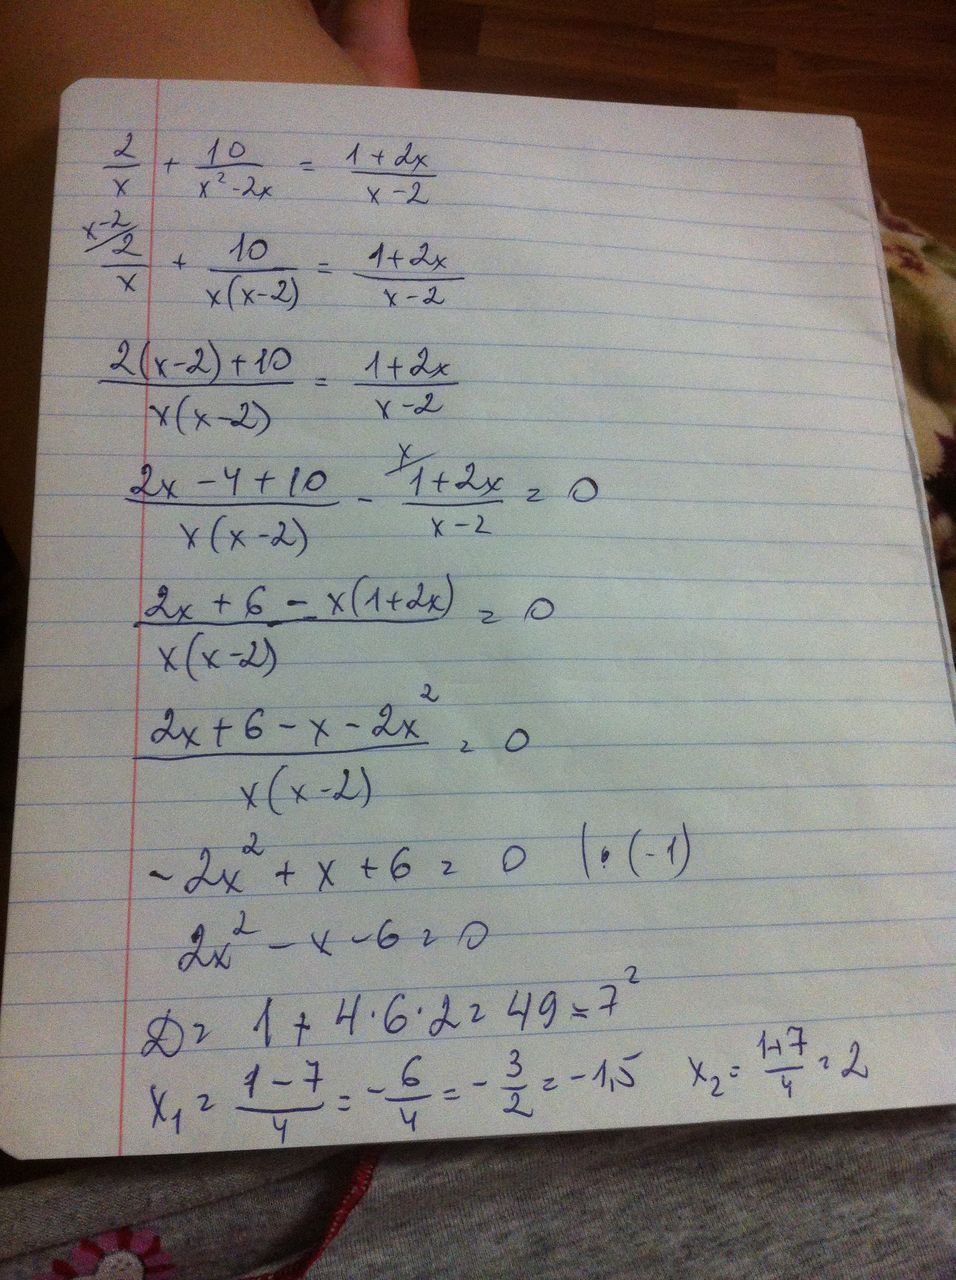 2/x + 10/(x² - 2x) = (1 + 2x)/(x - 2)
x-2/ 2/x + 10/(x(x-2)) = (1+2x)/(x-2)
(2(x-2)+10)/(x(x-2)) = (1+2x)/(x-2)
(2x - 4 + 10)/(x(x-2)) - x/ (1+2x)/(x-2) = 0
(2x + 6 - x(1+2x))/(x(x-2)) = 0
(2x + 6 - x - 2x²)/(x(x-2)) = 0
-2x² + x + 6 = 0 |·(-1)
2x² - x - 6 = 0
D = 1 + 4·6·2 = 49 = 7²
x₁ = (1-7)/4 = -6/4 = -3/2 = -1,5 x₂ = (1+7)/4 = 2